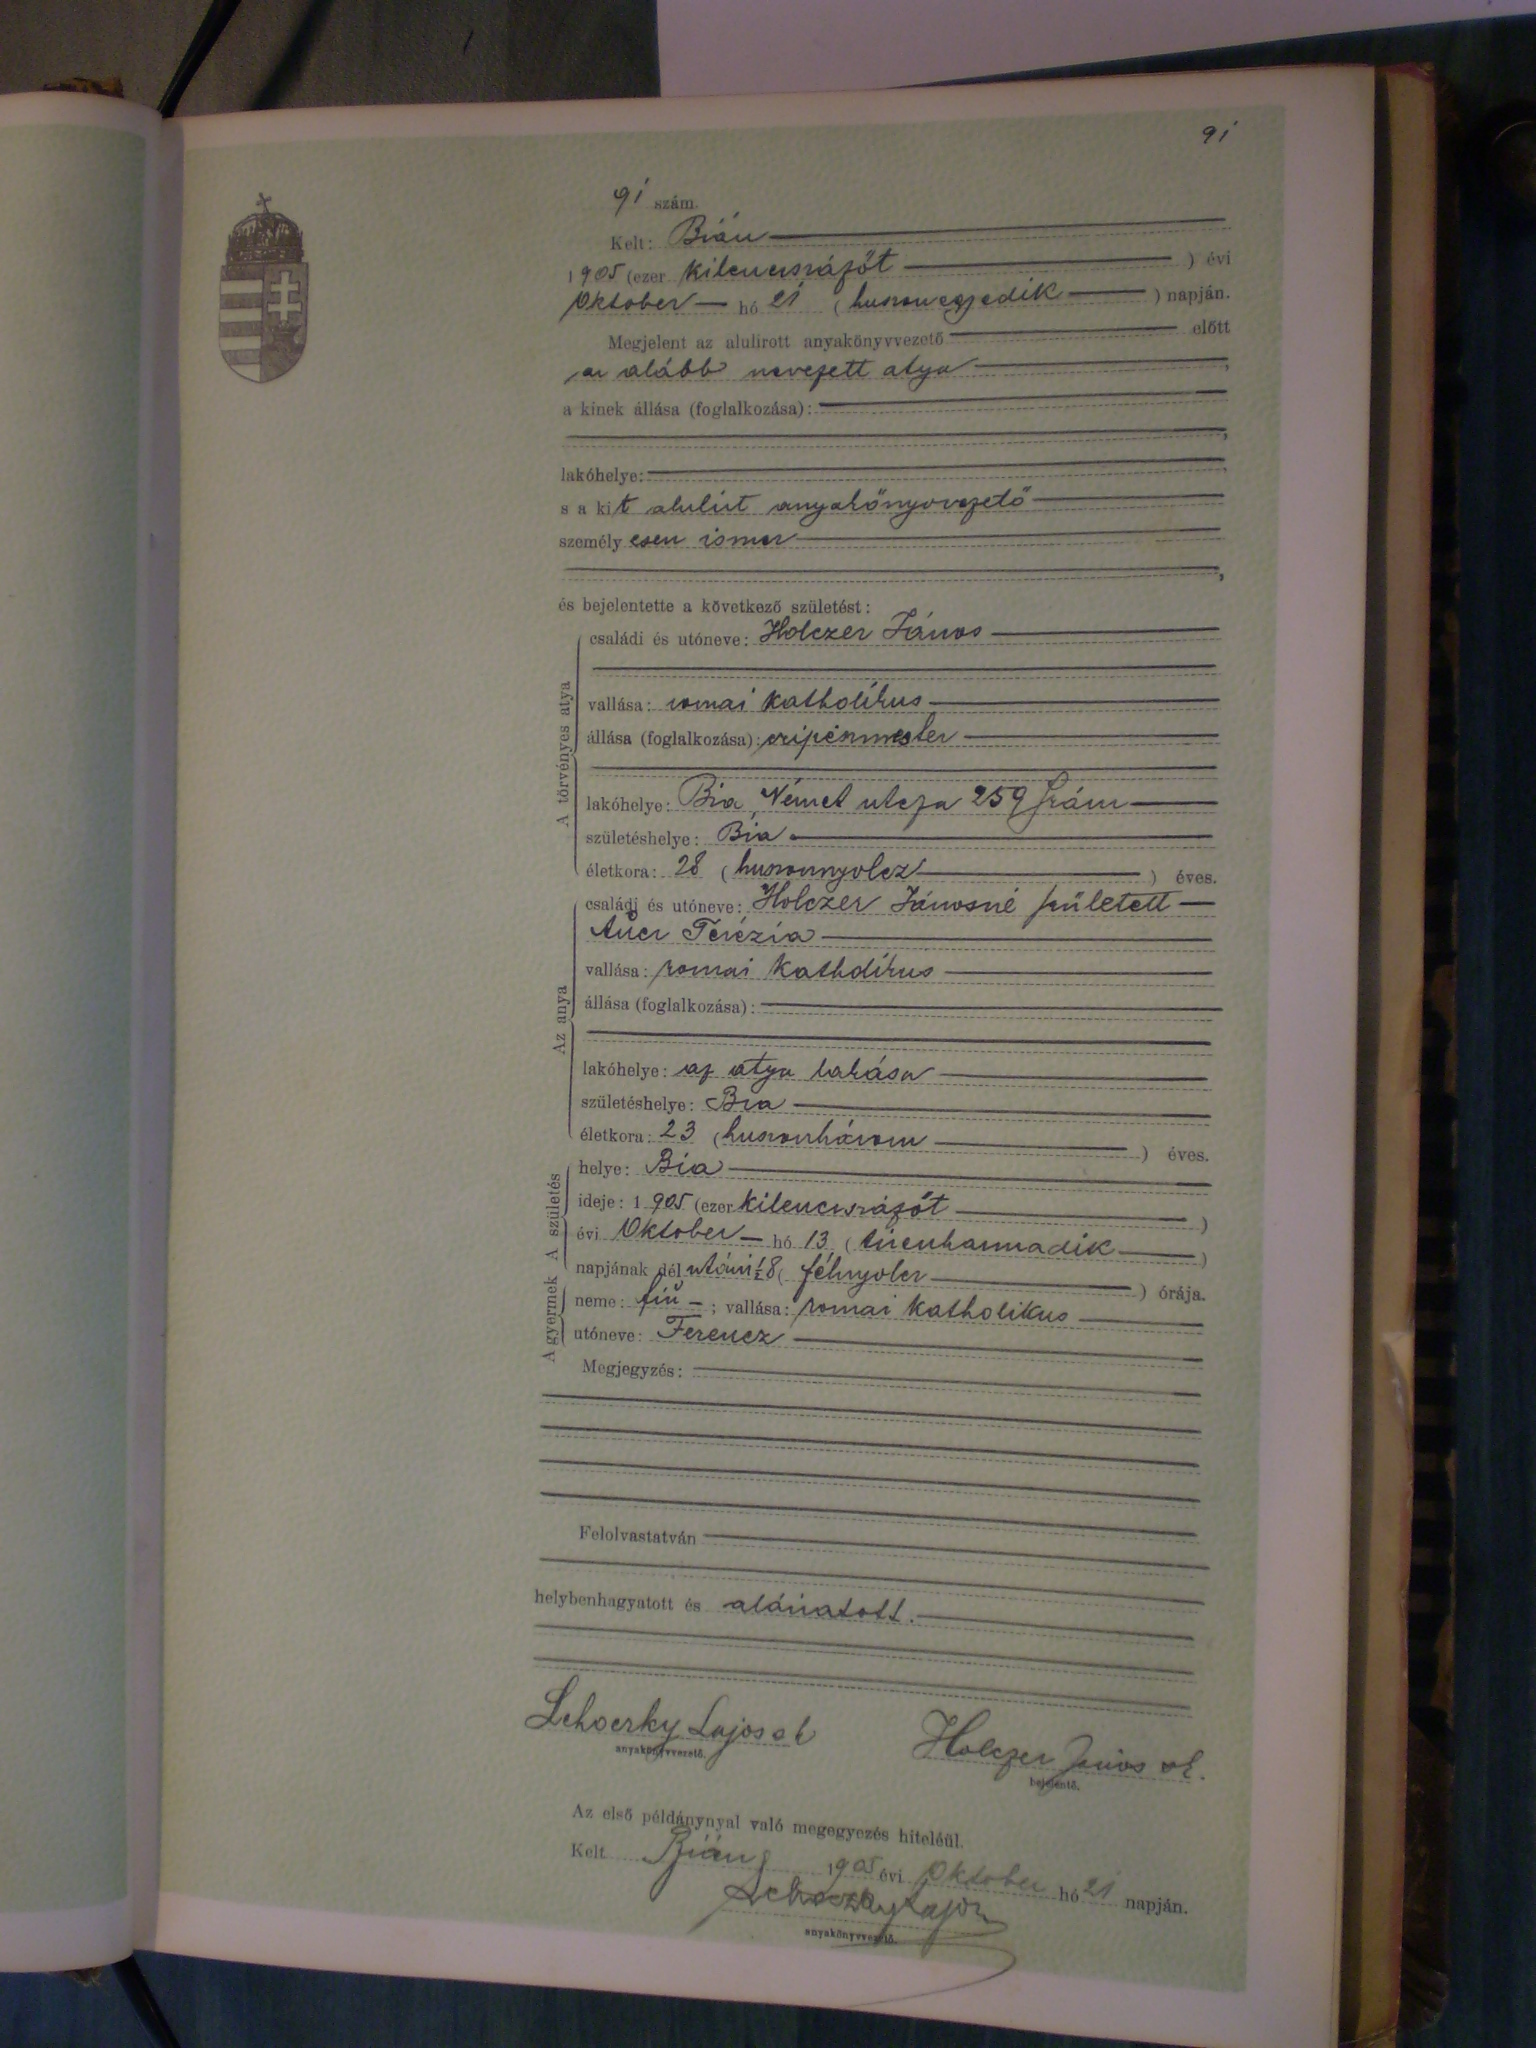 91
91 szám.
Kelt: Bián
1905 (ezer kilenczszázöt ) évi
Október hó 21 (huszonegyedik ) napján.
Megjelent az alulirott anyakönyvvezető előtt
az alább nevezett atya ,
a kinek állása (foglalkozása):
,
lakóhelye:
s a kit alulirt anyakönyvvezető
személyesen ismer
,
és bejelentette a következő születést:
A törvényes atya
családi és utóneve: Holczer János
vallása: romai katholikus
állása (foglalkozása): czipészmester
lakóhelye: Bia, Német utcza 259 szám
születéshelye: Bia
életkora: 28 (huszonnyolcz ) éves.
Az anya
családi és utóneve: Holczer Jánosné született
Auer Terézia
vallása: romai katholikus
állása (foglalkozása):
lakóhelye: az atya lakása
születéshelye: Bia
életkora: 23 (huszonhárom ) éves.
A születés
helye: Bia
ideje: 1905 (ezer kilenczszázöt )
évi Október hó 13 (tizenharmadik )
napjának dél utáni ½8 ( félnyolcz ) órája.
A gyermek
neme: fiú ; vallása: romai katholikus
utóneve: Ferencz
Megjegyzés:
Felolvastatván
helybenhagyatott és aláiratott.
Lehoczky Lajos sk Holczer János sk.
anyakönyvvezető. bejelentő.
Az első példánynyal való megegyezés hiteléül.
Kelt Bián, 1905 évi Október hó 21 napján.
Lehoczky Lajos
anyakönyvvezető.